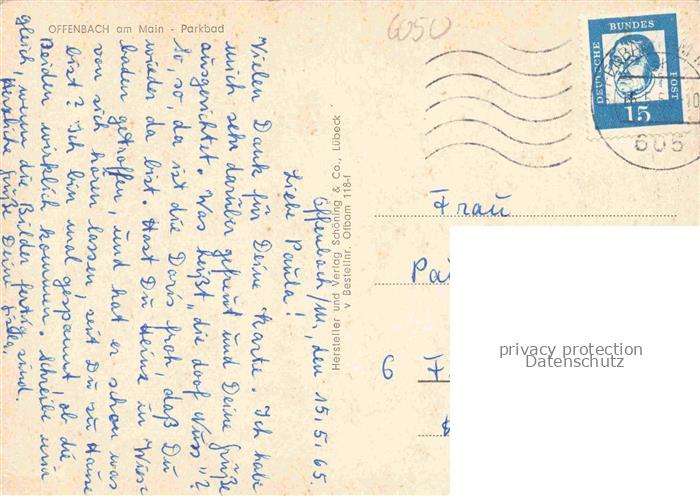 OFFENBACH am Main - Parkbad
6050
DEUTSCHE BUNDES POST
15
605
Hersteller und Verlag Schöning & Co., Lübeck
v Bestellnr. Ofbam 118-f
Offenbach/M., den 15.5.65.
Liebe Paula!
Vielen Dank für Deine Karte. Ich habe
mich sehr darüber gefreut und Deine Grüße
ausgerichtet. Was heißt „die doof Nuss"?
So, so, da ist die Doris froh, daß Du
wieder da bist. Hast Du Heinz in Wies-
baden getroffen, und hat er schon was
von sich hören lassen, seit Du zu Hause
bist? Ich bin mal gespannt, ob die
Beiden wirklich kommen. Schreibe mir
gleich, wenn die Bilder fertig sind.
Herzliche Grüße Deine
Frau
6
privacy protection
Datenschutz